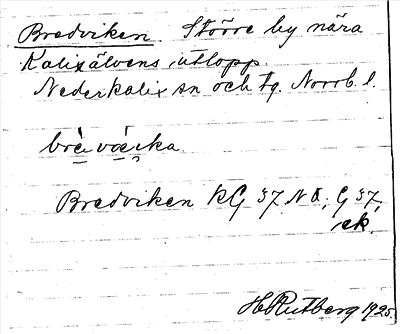 Bredviken. Större by nära
Kalixälvens utlopp.
Nederkalix sn och tg. Norrb. l.
Bredviken RG 37 NO; G 37,
ek.
H Rutberg 1925.